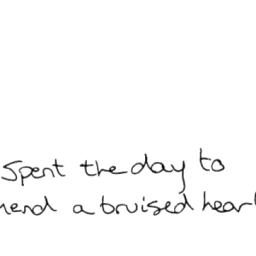 Spent the day to
mend a bruised heart